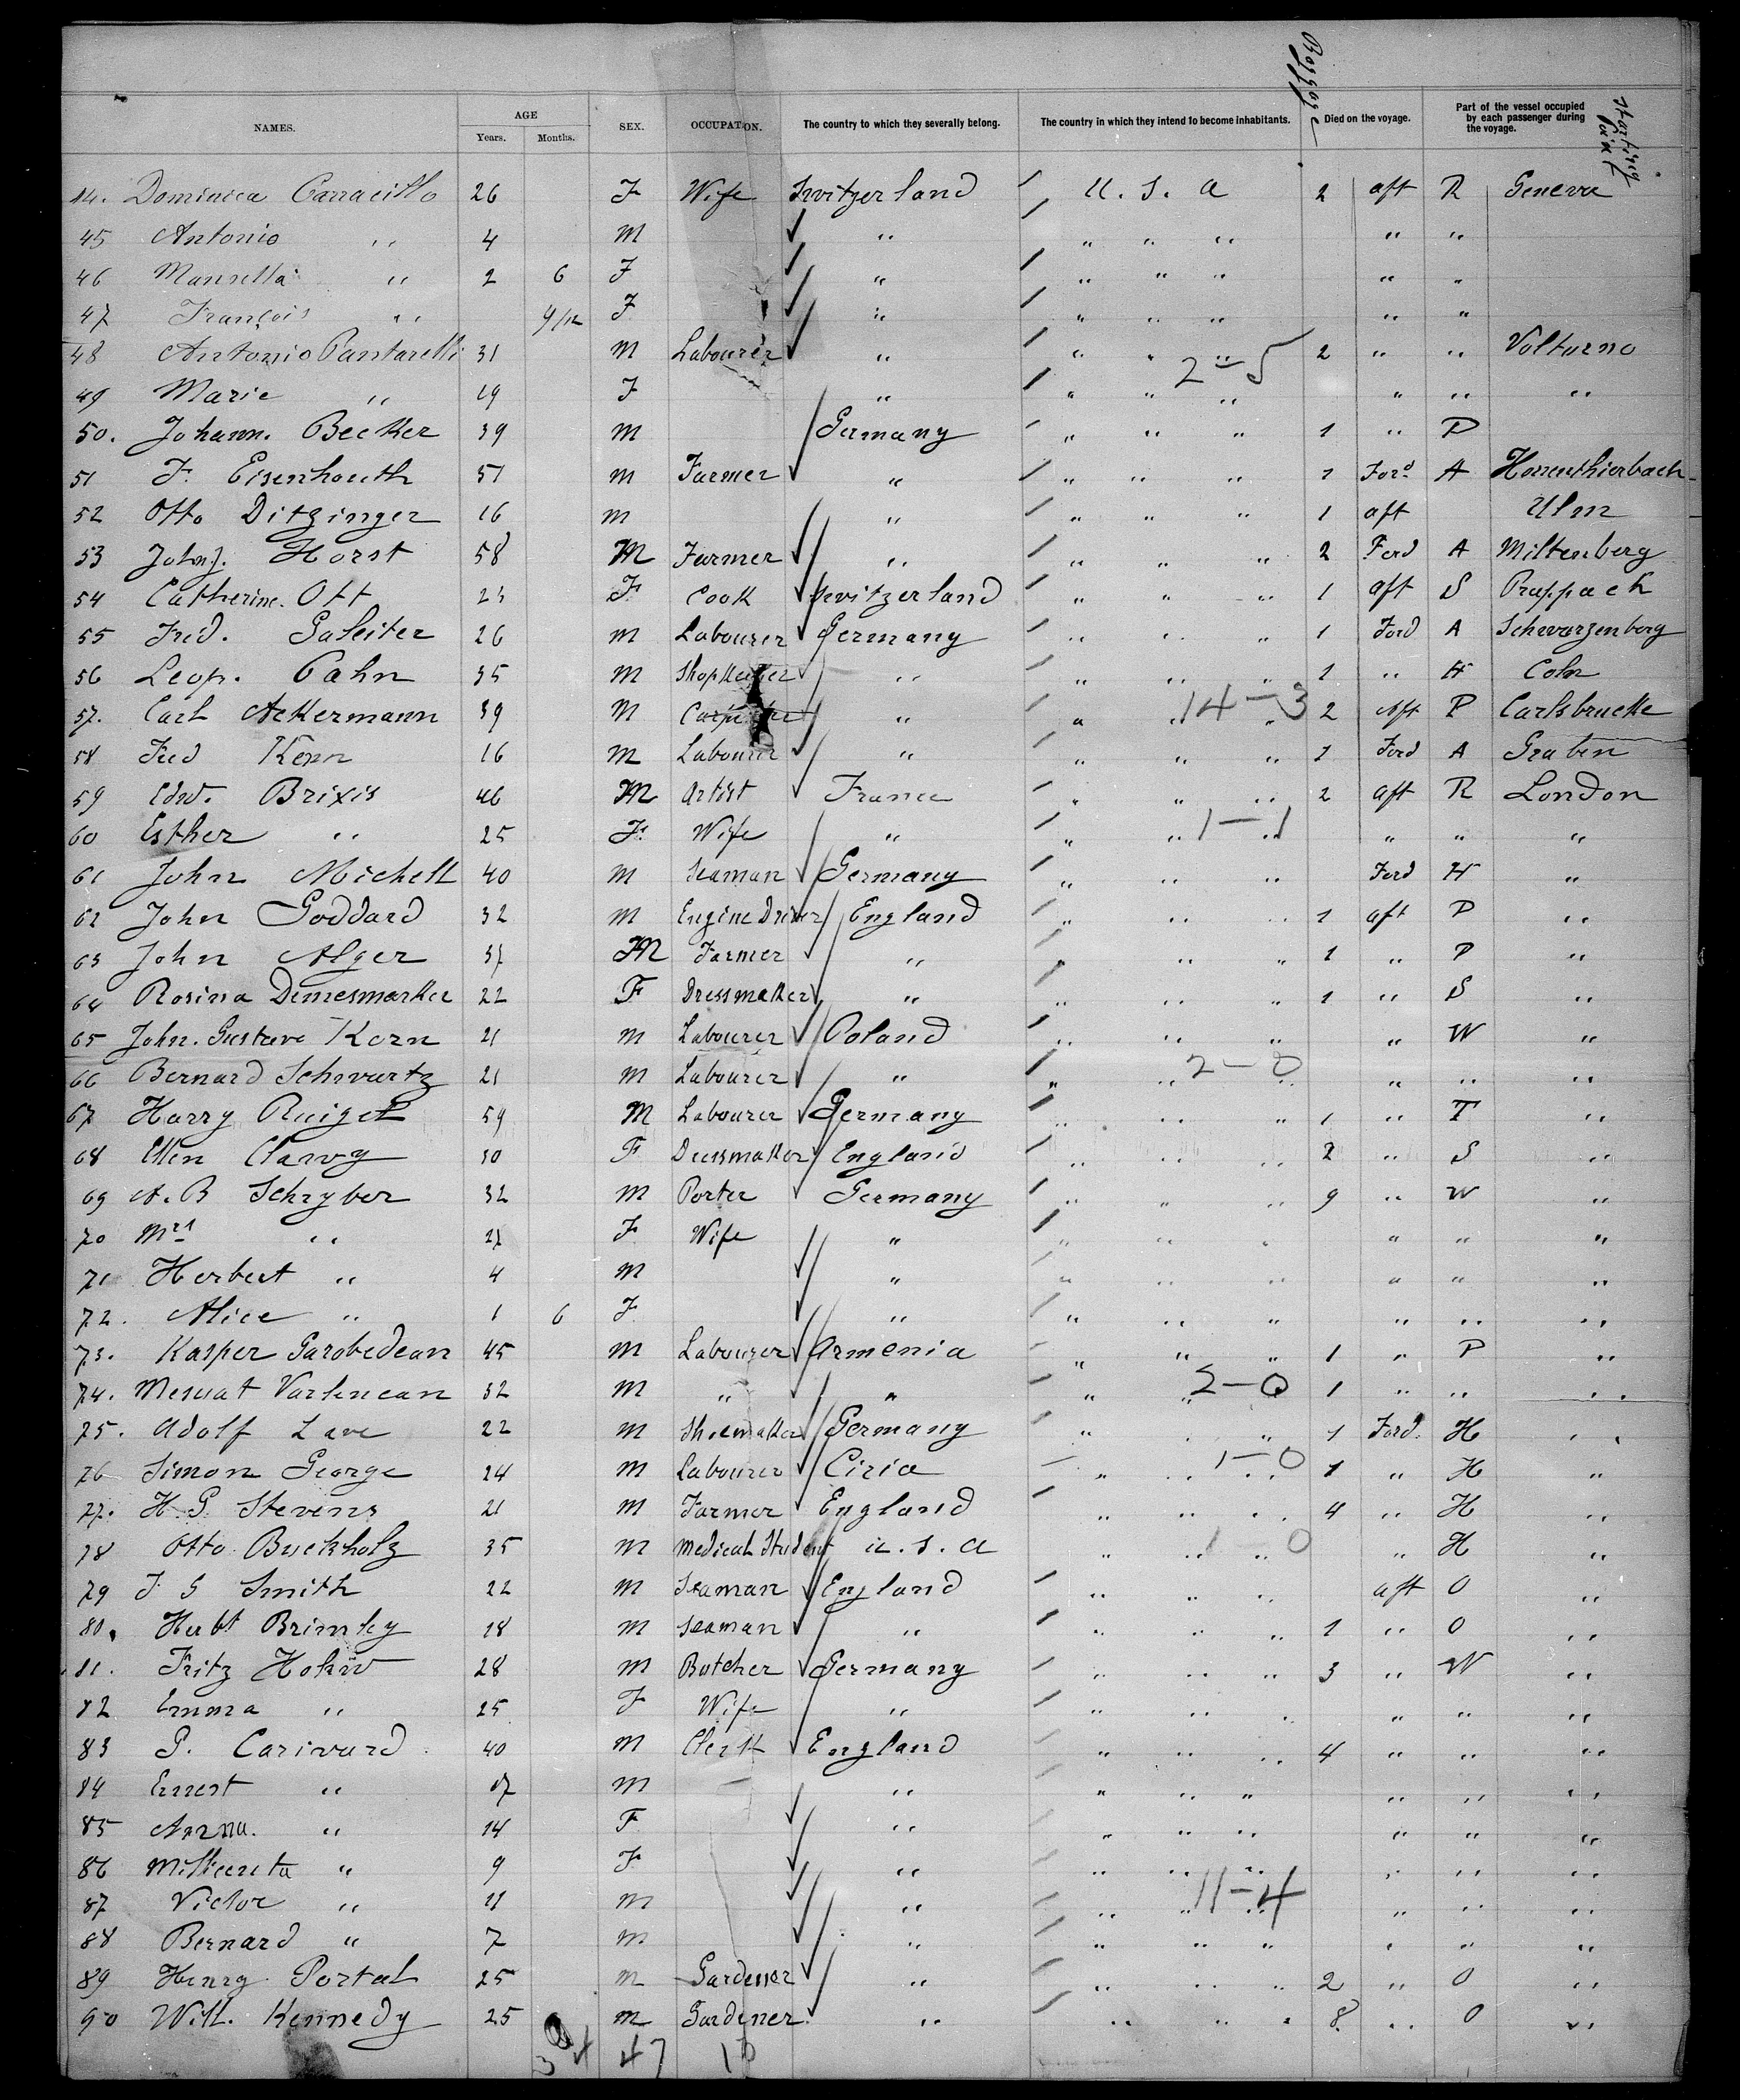 Baggage
Starting Point
NAMES. AGE Years. Months. SEX. OCCUPATION. The country to which they severally belong. The country in which they intend to become inhabitants. Died on the voyage. Part of the vessel occupied by each passenger during the voyage.
44. Dominica Carracillo 26 F Wife Switzerland / U. S. A 2 aft R Geneva
45 Antonio " 4 M " / " " " " "
46 " 2 6 F " / " " " " "
47 François " 9/12 F " / " " " " "
48 Antonio Pantarelli 31 M Labourer " / " " " 2 " " Volturno
2-5
49 Marie " 19 F " / " " " " " "
50. Johann. Becker 39 M Germany / " " " 1 " P
51 F. Eisenhouth 51 M Farmer " / " " " 1 Ford A
52 Otto Ditzinger 16 M " / " " " 1 aft Ulm
53 John J. Horst 58 M Farmer " / " " 2 Ford A Miltenberg
54 Catherine. Ott 23 F Cook Switzerland / " " " 1 aft S Pruppach
55 Fred. Galeiter 26 M Labourer Germany / " " " 1 Ford A Schwarzenberg
56 Leop. Cahn 35 M Shopkeeper " / " " " 1 " H Coln
57. Carl Ackermann 39 M Carpenter " " " " 2 Aft P Carlsbruche
14-3
58 Fred Kern 16 M Labourer " / " " " 1 Ford A Graben
59 Edw. Brixis 46 M Artist France / " " " 2 aft R London
60 Esther " 25 F. Wife " / " " " " " "
1-1
61 John Michell 40 M Seaman Germany / " " " Ford H "
62 John Goddard 32 M Engine Driver England / " " " 1 aft P "
63 John Alger 37 M Farmer " / " " 1 " P "
64 Rosina Demesmarker 22 F Dressmaker " / " " " 1 " S "
65 John. Gustave Korn 21 M Labourer Poland / " " " " W "
66 Bernard Schwartz 21 M Labourer " / " " " " " "
2-0
67 Harry 59 M Labourer Germany / " " " 1 " T "
68 Ellen 30 F Dressmaker England / " " " 2 " S "
69 A. B Schryber 32 M Porter Germany / " " " 9 " W "
70 Mrs " 27 F Wife " / " " " " " "
71 Herbert " 4 M " / " " " " " "
72. Alice " 1 6 F " / " " " " " "
73. Kasper Garobedean 45 M Labourer Armenia / " " " 1 " P "
74. Varlenean 32 M " " / " " 1 " " "
2-0
75. Adolf Lave 22 M Shoemaker Germany / " " " 1 Ford. H "
76 Simon George 24 M Labourer Ciria / " " " 1 " H "
1-0
77. H. G. Stevens 21 M Farmer England / " " " 4 " H "
78 Otto Buckholz 35 M Medical Student U. S. A " " " " H "
1 0
79 J G Smith 22 M Seaman England / " " " aft O "
80. Herbt Brimley 18 M Seaman " / " " " 1 " O "
81. Fritz 28 M Butcher Germany / " " " 3 " W "
82 Emma " 25 F Wife " / " " " " " "
83 P. Carivard 40 M Clerk England / " " " 4 " " "
84 Ernest " 17 M " / " " " " " "
85 Anna. " 14 F " / " " " " " "
86 " 9 F " / " " " " " "
11-4
87 Victor " 11 M " / " " " " " "
88 Bernard " 7 M " / " " " " " "
89 Henry Portal 25 M Gardener " / " " " 2 " O "
90 Will. Kennedy 25 M Gardener. " / " " " 8 " O "
47